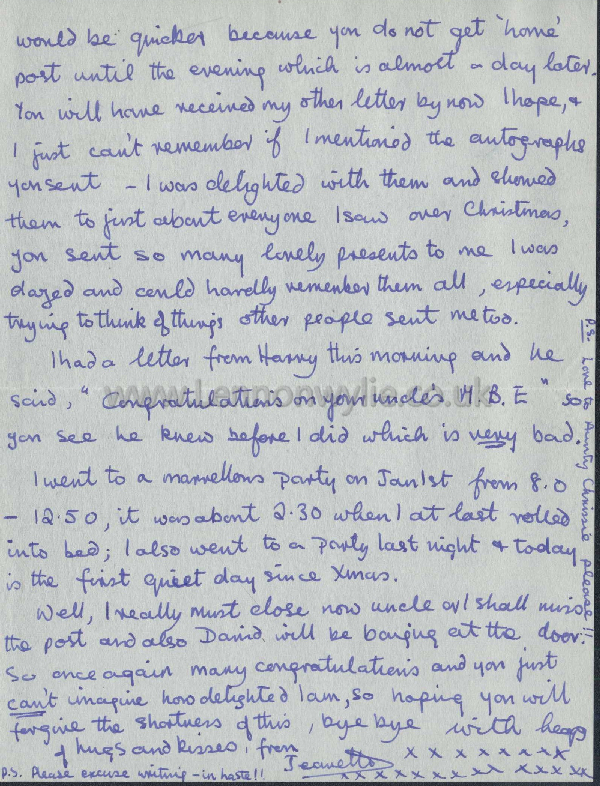 would be quicker because you do not get 'home'
post until the evening which is almost a day later.
You will have received my other letter by now I hope, &
I just can't remember if I mentioned the autographs
you sent - I was delighted with them and showed
them to just about everyone I saw over Christmas,
you sent so many lovely presents to me I was
dazed and could hardly remember them all, especially
trying to think of things other people sent me too.
I had a letter from Harry this morning and he
said, "Congratulations on your uncle's M.B.E" so
you see he knew before I did which is very bad.
I went to a marvellous party on Jan 1st from 8.0
- 12.50, it was about 2.30 when I at last rolled
into bed; I also went to a party last night & today
is the first quiet day since Xmas.
Well, I really must close now uncle or I shall miss
the post and also David will be banging at the door.
So once again many congratulations and you just
can't imagine how delighted I am, so hoping you will
forgive the shortness of this, bye bye with heaps
of hugs and kisses, from
Jeanette x x x x x x x x
x x x x x x x x x x x x
P.S. Please excuse writing - in haste!!
P.S. Love to Aunty Chrissie please!!
www.Lennonwylie.co.uk